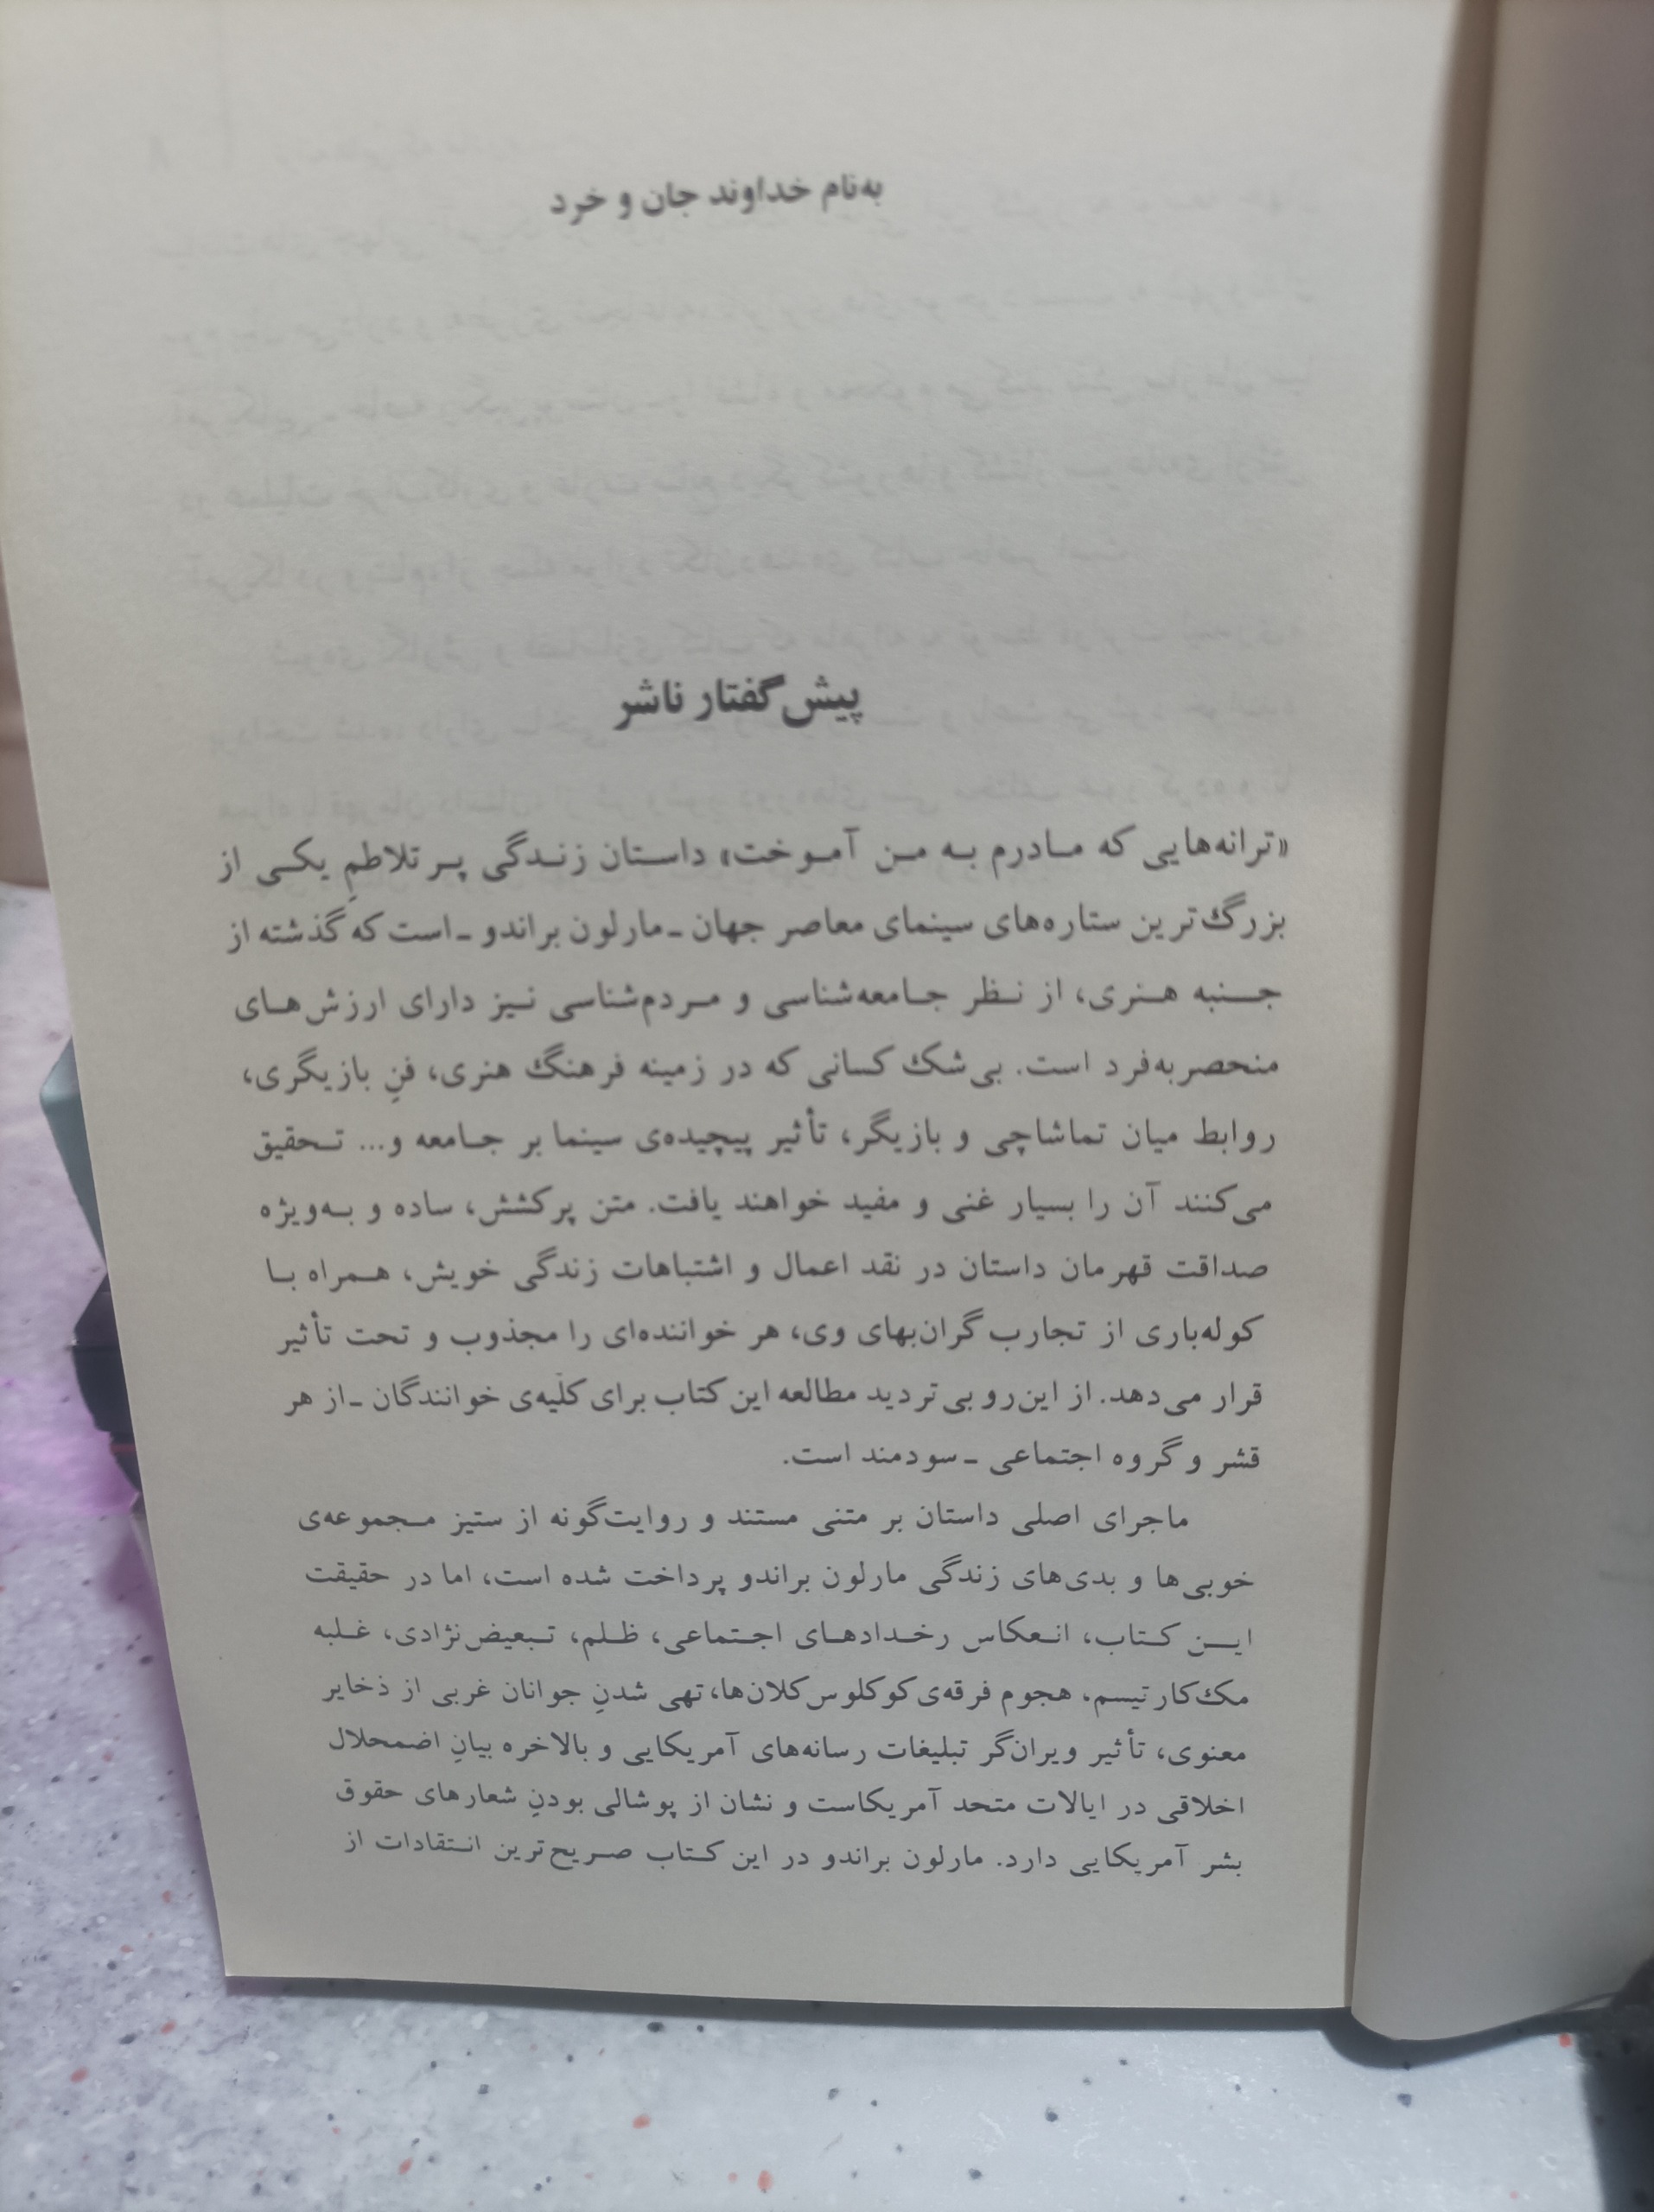 به‌نام خداوند جان و خرد
پیش‌گفتار ناشر
«ترانه‌هایی که مادرم به من آموخت» داستان زندگی پر تلاطمِ یکی از
بزرگ‌ترین ستاره‌های سینمای معاصر جهان ـ مارلون براندو ـ است که گذشته از
جنبه هنری، از نظر جامعه‌شناسی و مردم‌شناسی نیز دارای ارزش‌های
منحصربه‌فرد است. بی‌شک کسانی که در زمینه فرهنگ هنری، فنِ بازیگری،
روابط میان تماشاچی و بازیگر، تأثیر پیچیده‌ی سینما بر جامعه و... تحقیق
می‌کنند آن را بسیار غنی و مفید خواهند یافت. متن پرکشش، ساده و به‌ویژه
صداقت قهرمان داستان در نقد اعمال و اشتباهات زندگی خویش، همراه با
کوله‌باری از تجارب گران‌بهای وی، هر خواننده‌ای را مجذوب و تحت تأثیر
قرار می‌دهد. از این‌رو بی‌تردید مطالعه این کتاب برای کلّیه‌ی خوانندگان ـ از هر
قشر و گروه اجتماعی ـ سودمند است.
ماجرای اصلی داستان بر متنی مستند و روایت‌گونه از ستیز مجموعه‌ی
خوبی‌ها و بدی‌های زندگی مارلون براندو پرداخت شده است، اما در حقیقت
این کتاب، انعکاس رخدادهای اجتماعی، ظلم، تبعیض‌نژادی، غلبه
مک‌کارتیسم، هجوم فرقه‌ی کوکلوس‌کلان‌ها، تهی شدنِ جوانان غربی از ذخایر
معنوی، تأثیر ویران‌گر تبلیغات رسانه‌های آمریکایی و بالاخره بیانِ اضمحلال
اخلاقی در ایالات متحد آمریکاست و نشان از پوشالی بودنِ شعارهای حقوق
بشر آمریکایی دارد. مارلون براندو در این کتاب صریح‌ترین انتقادات از